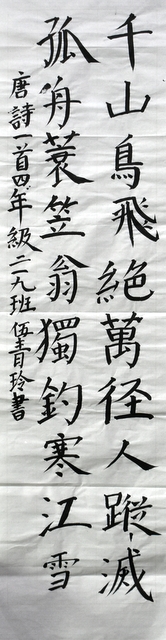 千山鳥飛絕萬径人蹤滅
孤舟蓑笠翁獨釣寒江雪
唐詩一首四年級二九班伍青玲書